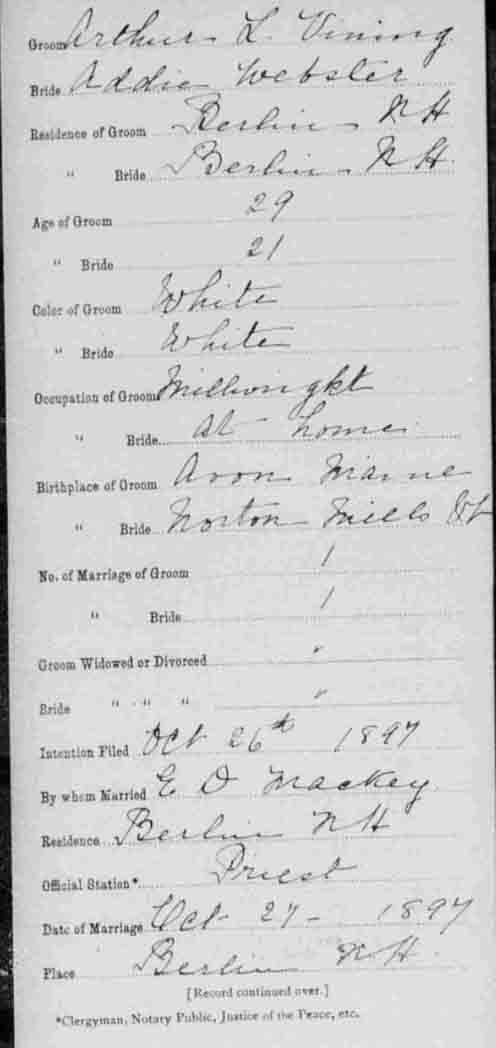 Groom Arthur L. Vining
Bride Addie Webster
Residence of Groom Berlin N H
" Bride Berlin N H.
Age of Groom 29
" Bride 21
Color of Groom White
" Bride White
Occupation of Groom Millwright
" Bride at home
Birthplace of Groom Avon Maine
" Bride Norton Mills Vt
No. of Marriage of Groom 1
" Bride 1
Groom Widowed or Divorced "
Bride " " " "
Intention Filed Oct 26th 1897
By whom Married E D Mackey
Residence Berlin N H
Official Station* Priest
Date of Marriage Oct 27 - 1897
Place Berlin N H.
[Record continued over.]
*Clergyman, Notary Public, Justice of the Peace, etc.